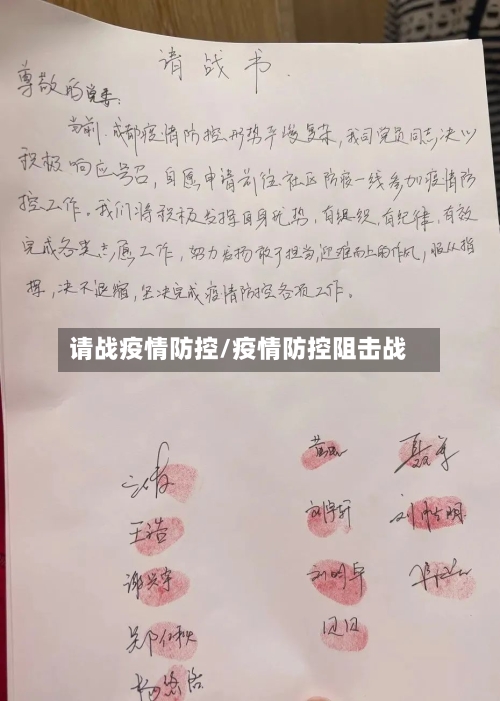 请战书.
尊敬的党委:
当前,成都疫情防控形势严峻复杂,我司党员同志决心
积极响应号召,自愿申请前往社区防疫一线参加疫情防
控工作。我们将积极发挥自身优势,有组织,有纪律,有效
完成各类志愿工作,努力发扬敢于担当,迎难而上的作风,服从指
挥,决不退缩,坚决完成疫情防控各项工作。
请战疫情防控/疫情防控阻击战
王浩
刘宇轩
谢兴宇
刘明卓